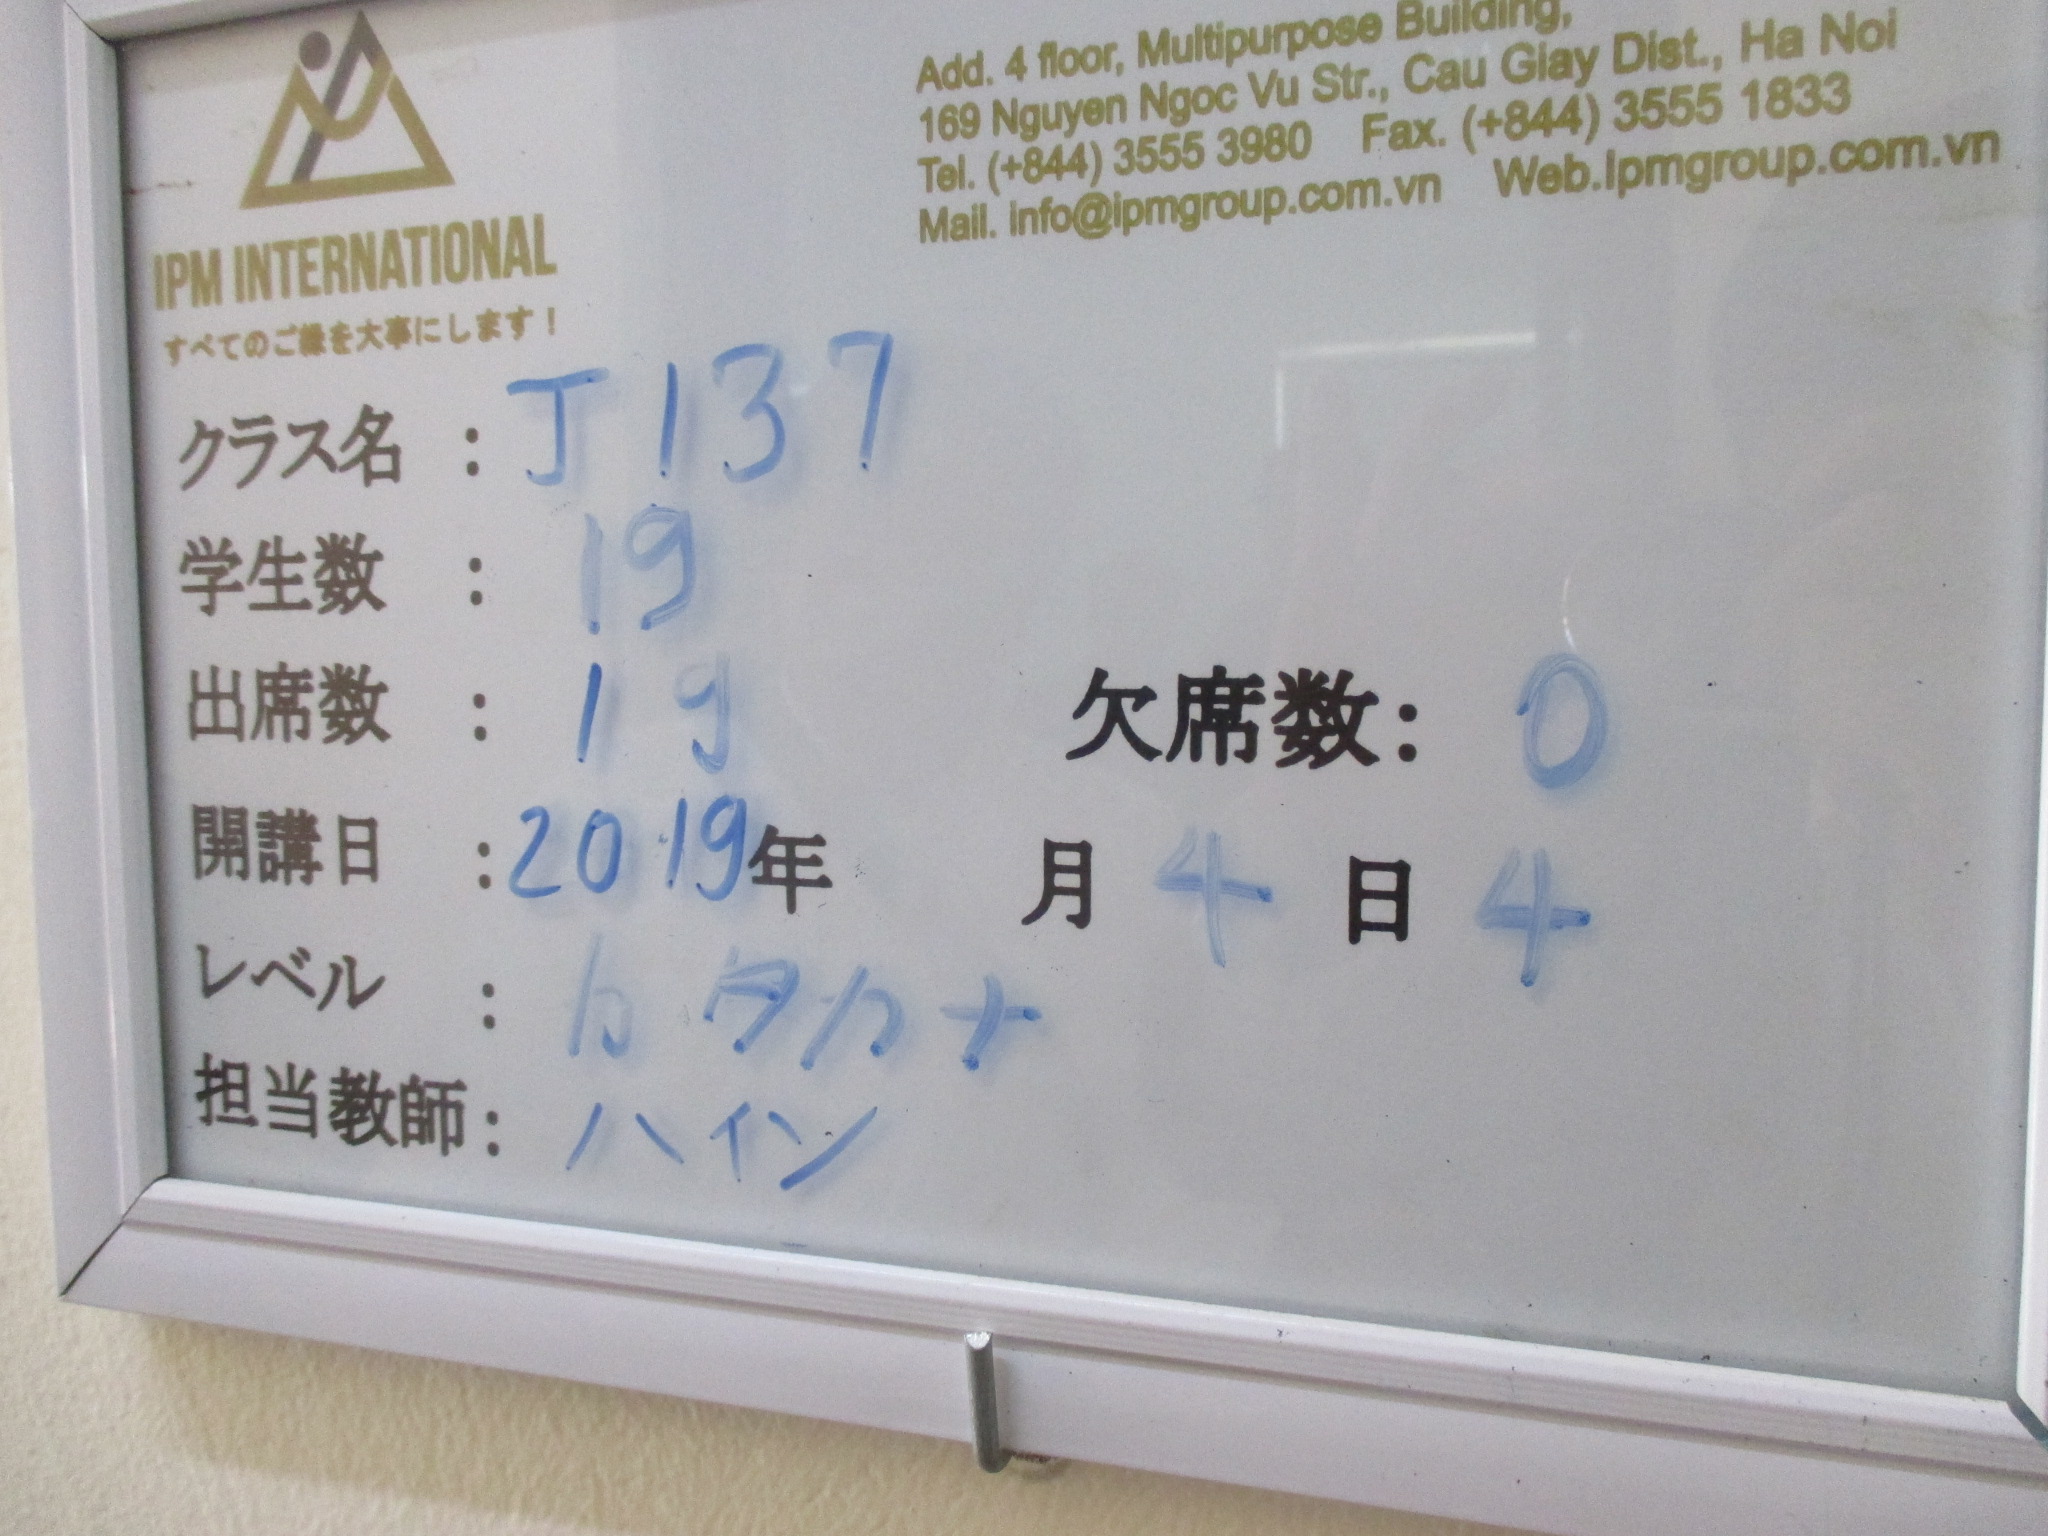 IPM INTERNATIONAL
すべてのご縁を大事にします！
Add. 4 floor, Multipurpose Building,
169 Nguyen Ngoc Vu Str., Cau Giay Dist., Ha Noi
Tel. (+844) 3555 3980 Fax. (+844) 3555 1833
Mail. info@ipmgroup.com.vn Web.ipmgroup.com.vn
クラス名 : J137
学生数 : 19
出席数 : 19 欠席数: 0
開講日 : 2019年 月 4 日 4
レベル : カタカナ
担当教師: ハイン